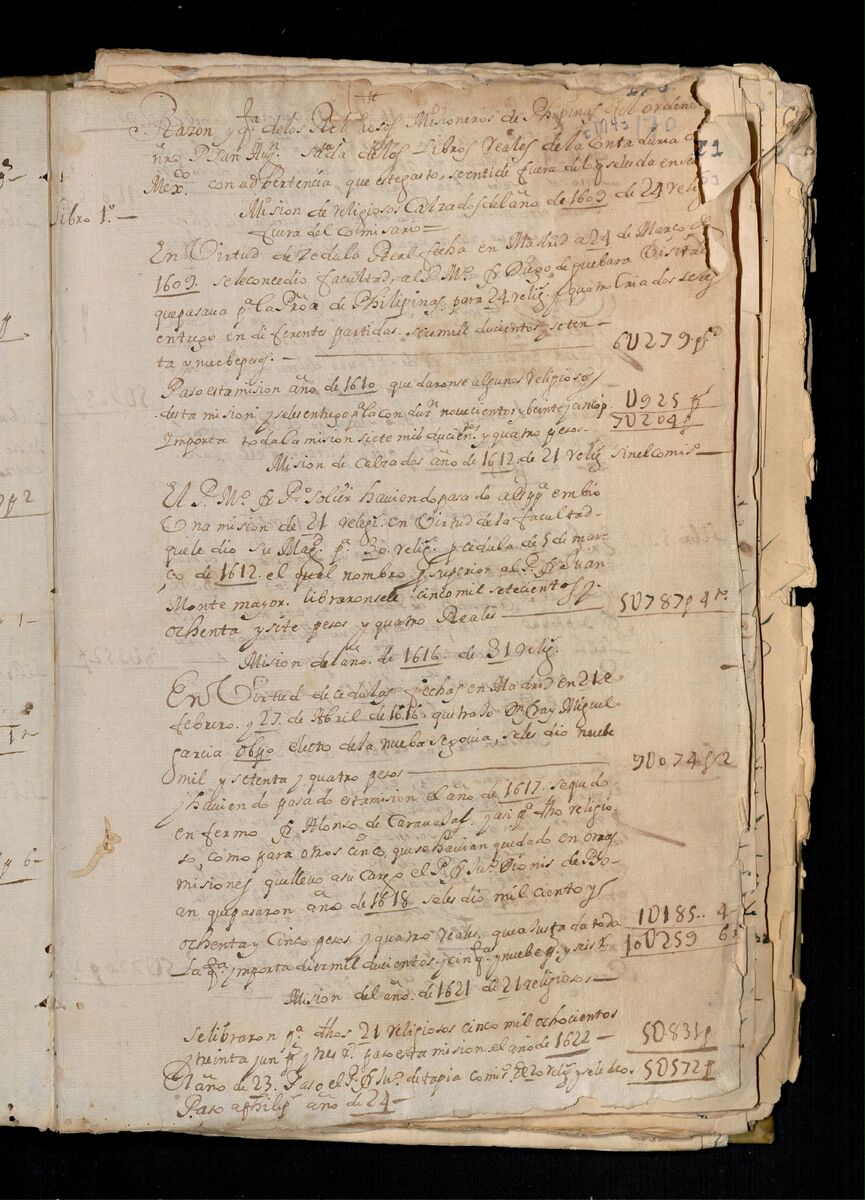 Razon y qta de los Religiosos Misioneros de Phipinas del orden de
nro P. San Augn sacada de los Libros Reales de la Contaduria de
Mexco con adbertencia, que este gasto, se entiende fuera del q se les da en
Libro 1º —
Mision de religiosos Calzados del año de 1609 de 24 relig
fuera del Comisario —
En Virtud de Zedula Real fecha en Madrid a 24 de Março de
1609. se le concedio facultad, al P. Mº fr Diego de Guebara Visitador
que pasaua pª la Proa de Philipinas, para 24 religs y quatro Criados se les
entrego en diferentes partidas. seis mil ducientos y seten-
ta y nuebe pesos. —
6U279 ps
Paso esta mision año de 1610 quedaronse algunos religiosos
desta mision, y se les entrego pª la conduzn nouecientos y beinte y cinco p
U925 p
Importa toda la mision siete mil ducientos y quatro pesos.
7U204 p
Mision de Calzados año de 1612. de 21 religs sin el Comisº —
El P. Mº fr Pº Solier hauiendo pasado a Espª embio
Una mision de 21 religs. en Virtud de la facultad
que le dio su Magd. pª 30. religs. p cedula de 5 de mar-
ço de 1612. el qual nombro p superior al P. fr Juan
Monte mayor. libraronsele cinco mil setecientos y
ochenta y siete pesos y quatro Reales —
5U787 p 4 rs
Mision del año. de 1616 de 31 religs.
En Virtud de cedulas fechas en Madrid en 21 de
febrero. y 27. de Abril de 1616 que trajo Dn fray Miguel
garcia Obpo electo de la nueba Segouia, se les dio nuebe
mil y setenta y quatro pesos —
9U074 p 2
y hauiendo pasado esta mision el año de 1617. se quedo
enfermo fr Alonso de Carauajal. y asi pª dho religio-
so, como para otros cinco, que se hauian quedado en otras
misiones que lleuo a su Cargo el P. fr Juº
an que pasaron año de 1618 se les dio mil ciento y
ochenta y Cinco pesos y quatro reales, que ajustada toda
1U185.. 4
la qta importa diez mil ducientos y cinqta y nuebe ps. y seis rs
10U259 6 r
Mision del año. de 1621 de 21 religiosos —
Se libraron pª dhos 21 religiosos cinco mil ochocientos
y treinta y un ps y tres rs. paso esta mision el año de 1622 —
5U831 p
El año de 23. Paso el P. fr Juº de tapia comisº de 20 religs y se le dio.
5U572 p
Paso a Philips año de 24 —